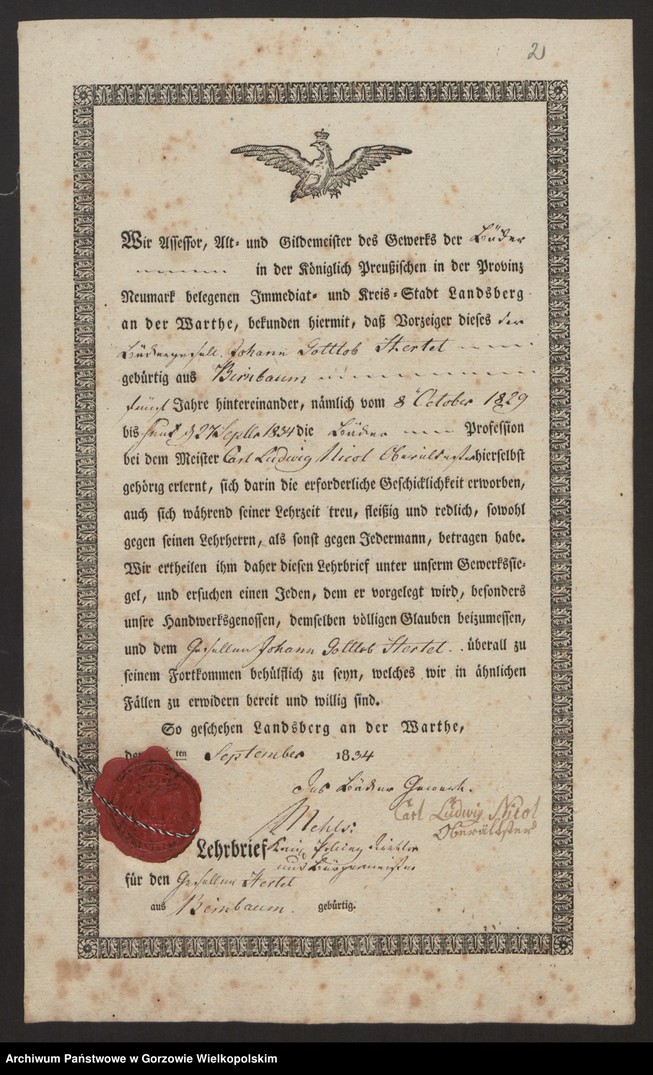 2
Wir Assessor, Alt- und Gildemeister des Gewerks der Bäcker
in der Königlich Preußischen in der Provinz
Neumark belegenen Immediat- und Kreis-Stadt Landsberg
an der Warthe, bekunden hiermit, daß Vorzeiger dieses der
Bäckergesell Johann Gottlob Hertel
gebürtig aus Birnbaum
fünf Jahre hintereinander, nämlich vom 8 October 1829
bis 27 Septbr 1834 die Bäcker Profession
bei dem Meister Carl Ludwig Nicol Oberältester hierselbst
gehörig erlernt, sich darin die erforderliche Geschicklichkeit erworben,
auch sich während seiner Lehrzeit treu, fleißig und redlich, sowohl
gegen seinen Lehrherrn, als sonst gegen Jedermann, betragen habe.
Wir ertheilen ihm daher diesen Lehrbrief unter unserm Gewerkssie-
gel, und ersuchen einen Jeden, dem er vorgelegt wird, besonders
unsre Handwerksgenossen, demselben völligen Glauben beizumessen,
und dem Gesellen Johann Gottlob Hertel überall zu
seinem Fortkommen behülflich zu seyn, welches wir in ähnlichen
Fällen zu erwidern bereit und willig sind.
So geschehen Landsberg an der Warthe,
den ten September 1834
Das Bäcker Gewerk.
Carl Ludwig Nicol
Oberältester
Mehls
Lehrbrief
und Bürgermeister
für den Gesellen Hertel
aus Birnbaum gebürtig.
Archiwum Państwowe w Gorzowie Wielkopolskim